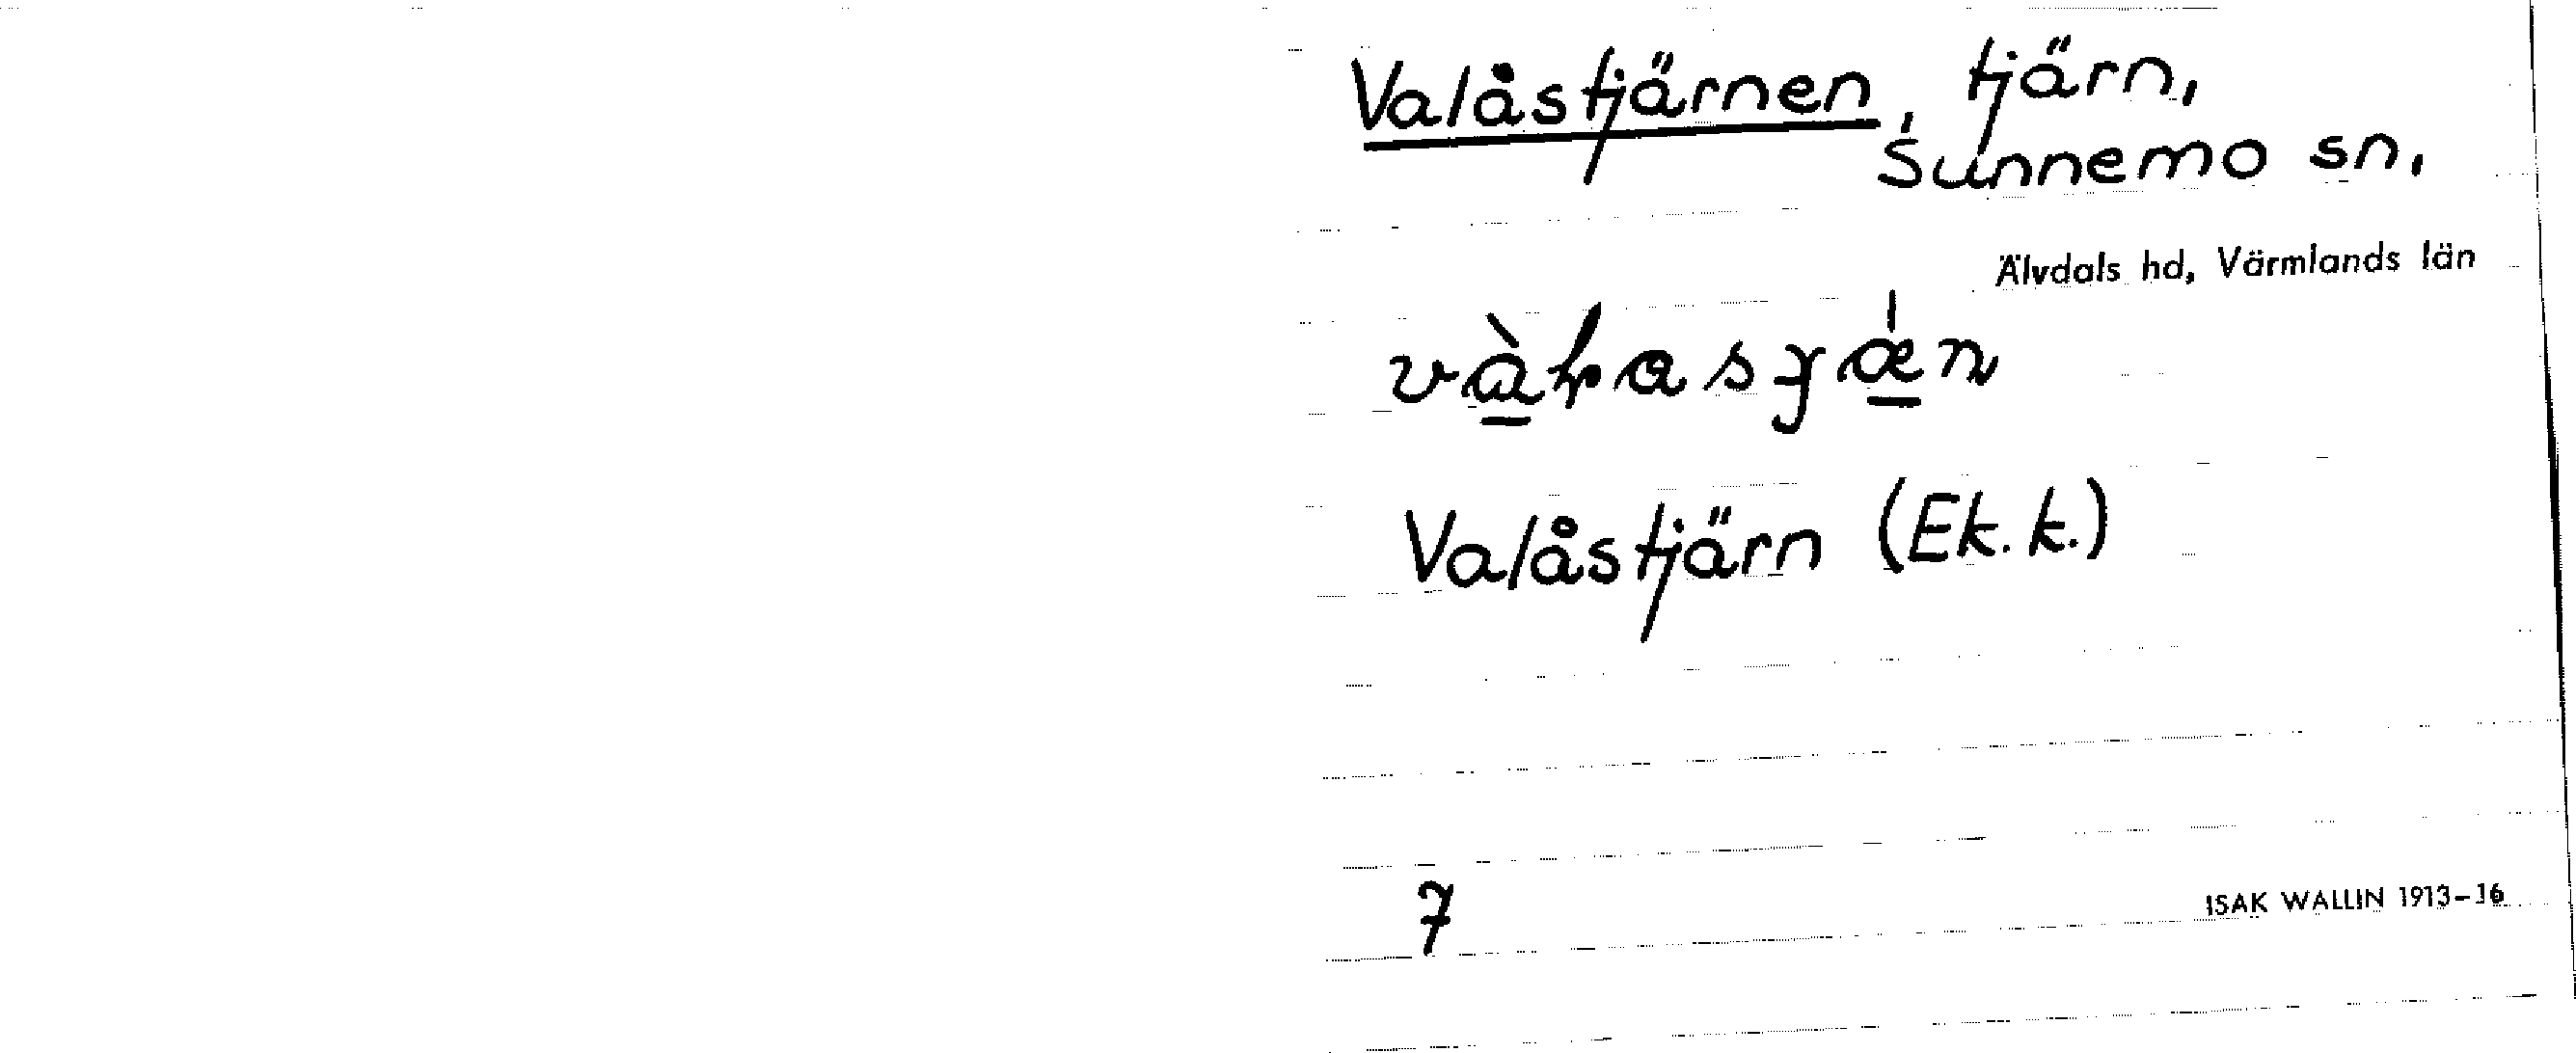 Valåstjärnen, tjärn,
Sunnemo sn,
Älvdals hd, Värmlands län
Valåstjärn (Ek. k.)
7
ISAK WALLIN 1913-16